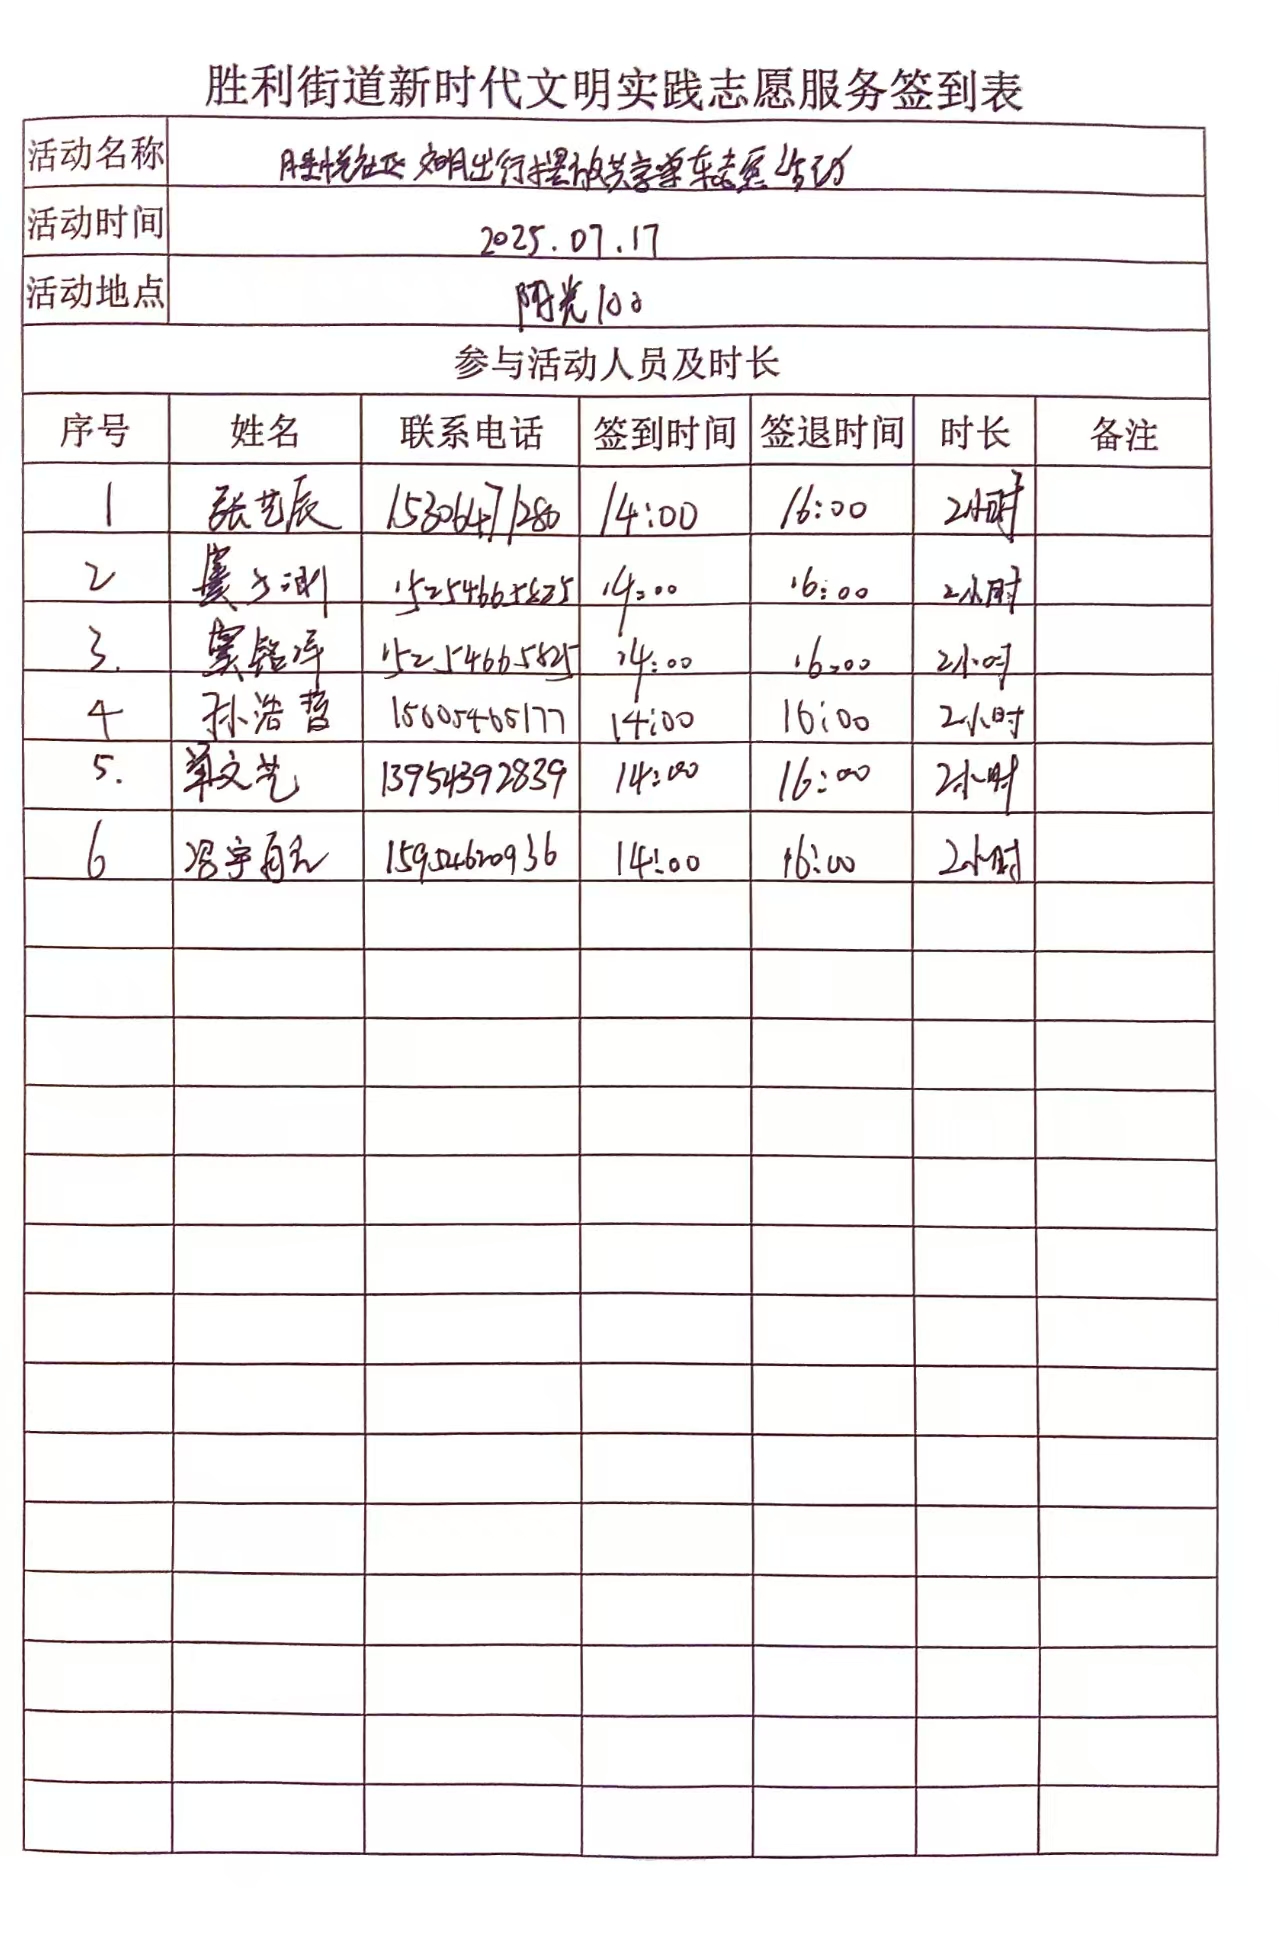 胜利街道新时代文明实践志愿服务签到表
活动名称 胜悦社区文明出行摆放共享单车志愿活动
活动时间 2025.07.17
活动地点 阳光100
参与活动人员及时长
序号 姓名 联系电话 签到时间 签退时间 时长 备注
1 张艺辰 15306471280 14:00 16:00 2小时
2 15254665825 14:00 16:00 2小时
3. 窦铭泽 15254665825 14:00 16:00 2小时
4 孙浩哲 15605465177 14:00 16:00 2小时
5. 单文艺 13954392839 14:00 16:00 2小时
6 冯宇 15954620936 14:00 16:00 2小时